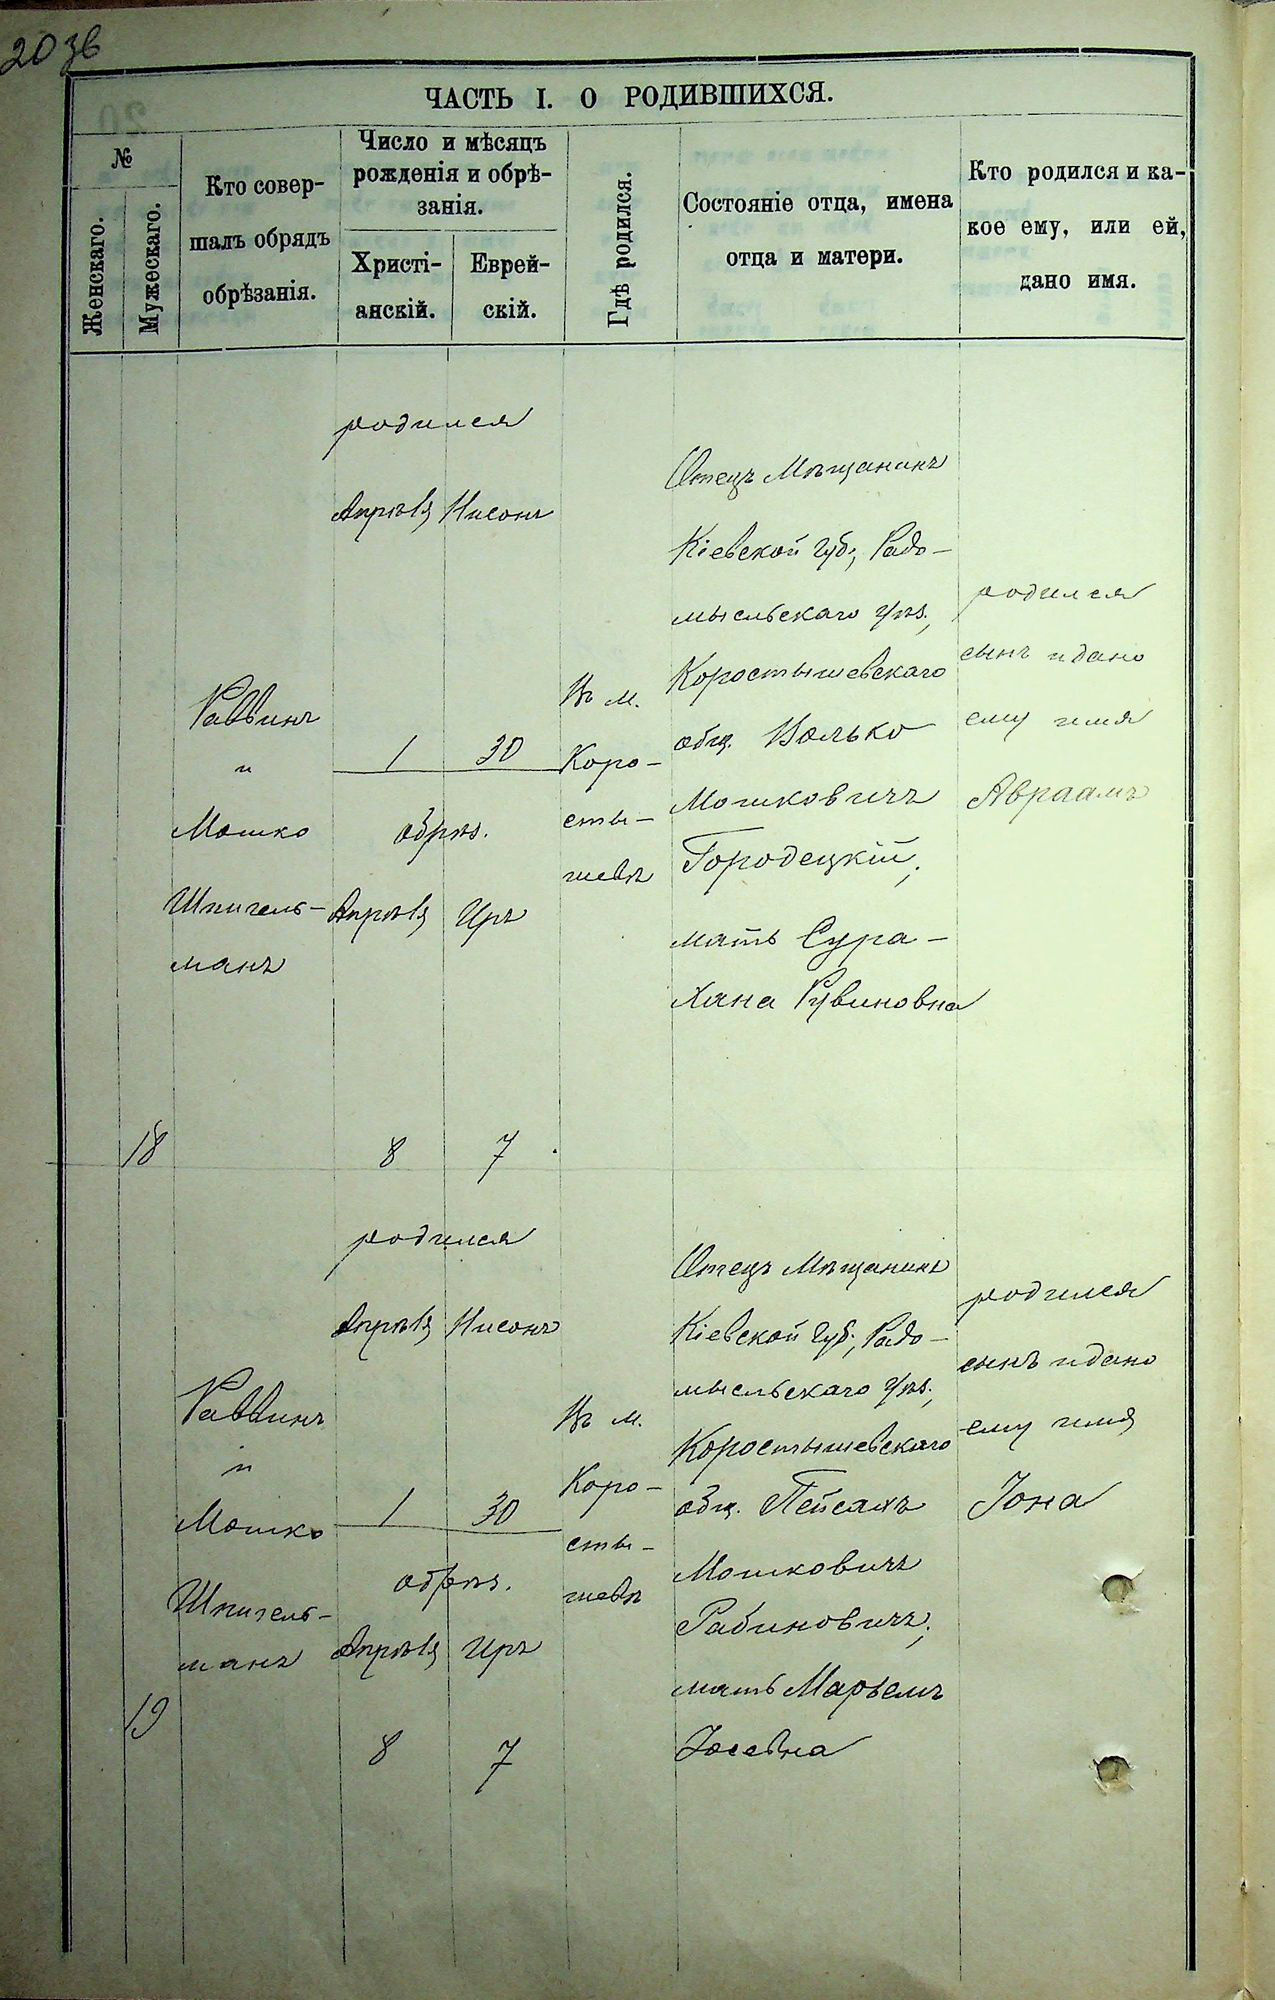 20 зв
ЧАСТЬ I. О РОДИВШИХСЯ.
№
Женскаго.
Мужескаго.
Кто совер-
шалъ обрядъ
обрѣзанія.
Число и мѣсяцъ
рожденія и обрѣ-
занія.
Христі-
анскій.
Еврей-
скій.
Гдѣ родился.
Состояніе отца, имена
отца и матери.
Кто родился и ка-
кое ему, или ей,
дано имя.
18
Раввинъ
и
Мошко
Шпигель-
манъ
родился
Апрѣля Нисонъ
1 30
обрѣз.
Апрѣля Иръ
8 7
Въ м.
Коро-
сты-
шевѣ
Отецъ Мѣщанинъ
Кіевской губ., Радо-
мысльскаго уѣз.,
Коростышевскаго
общ. Волько
Мошковичъ
Городецкій;
мать Сура-
Хана Рувиновна
родился
сынъ и дано
ему имя
Авраамъ
19
Раввинъ
и
Мошко
Шпигель-
манъ
родился
Апрѣля Нисонъ
1 30
обрѣз.
Апрѣля Иръ
8 7
Въ м.
Коро-
сты-
шевѣ
Отецъ Мѣщанинъ
Кіевской губ., Радо-
мысльскаго уѣз.,
Коростышевскаго
общ. Пейсахъ
Мошковичъ
Рабиновичъ;
мать Марьемъ
Іосевна
родился
сынъ и дано
ему имя
Іона